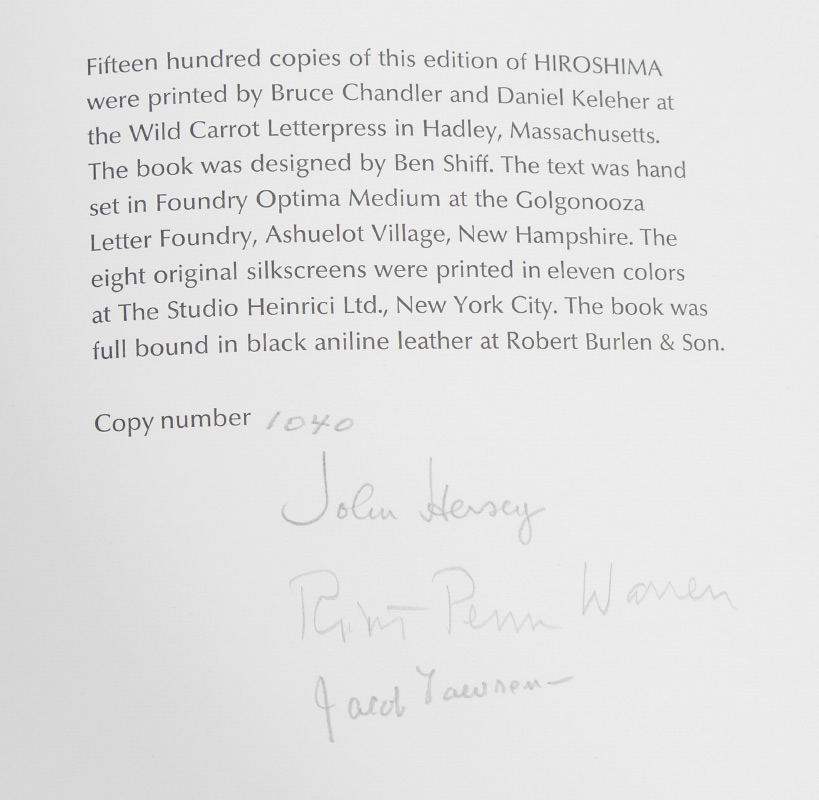 Fifteen hundred copies of this edition of HIROSHIMA
were printed by Bruce Chandler and Daniel Keleher at
the Wild Carrot Letterpress in Hadley, Massachusetts.
The book was designed by Ben Shiff. The text was hand
set in Foundry Optima Medium at the Golgonooza
Letter Foundry, Ashuelot Village, New Hampshire. The
eight original silkscreens were printed in eleven colors
at The Studio Heinrici Ltd., New York City. The book was
full bound in black aniline leather at Robert Burlen & Son.
Copy number 1040
John Hersey
Robert Penn Warren
Jacob Lawrence